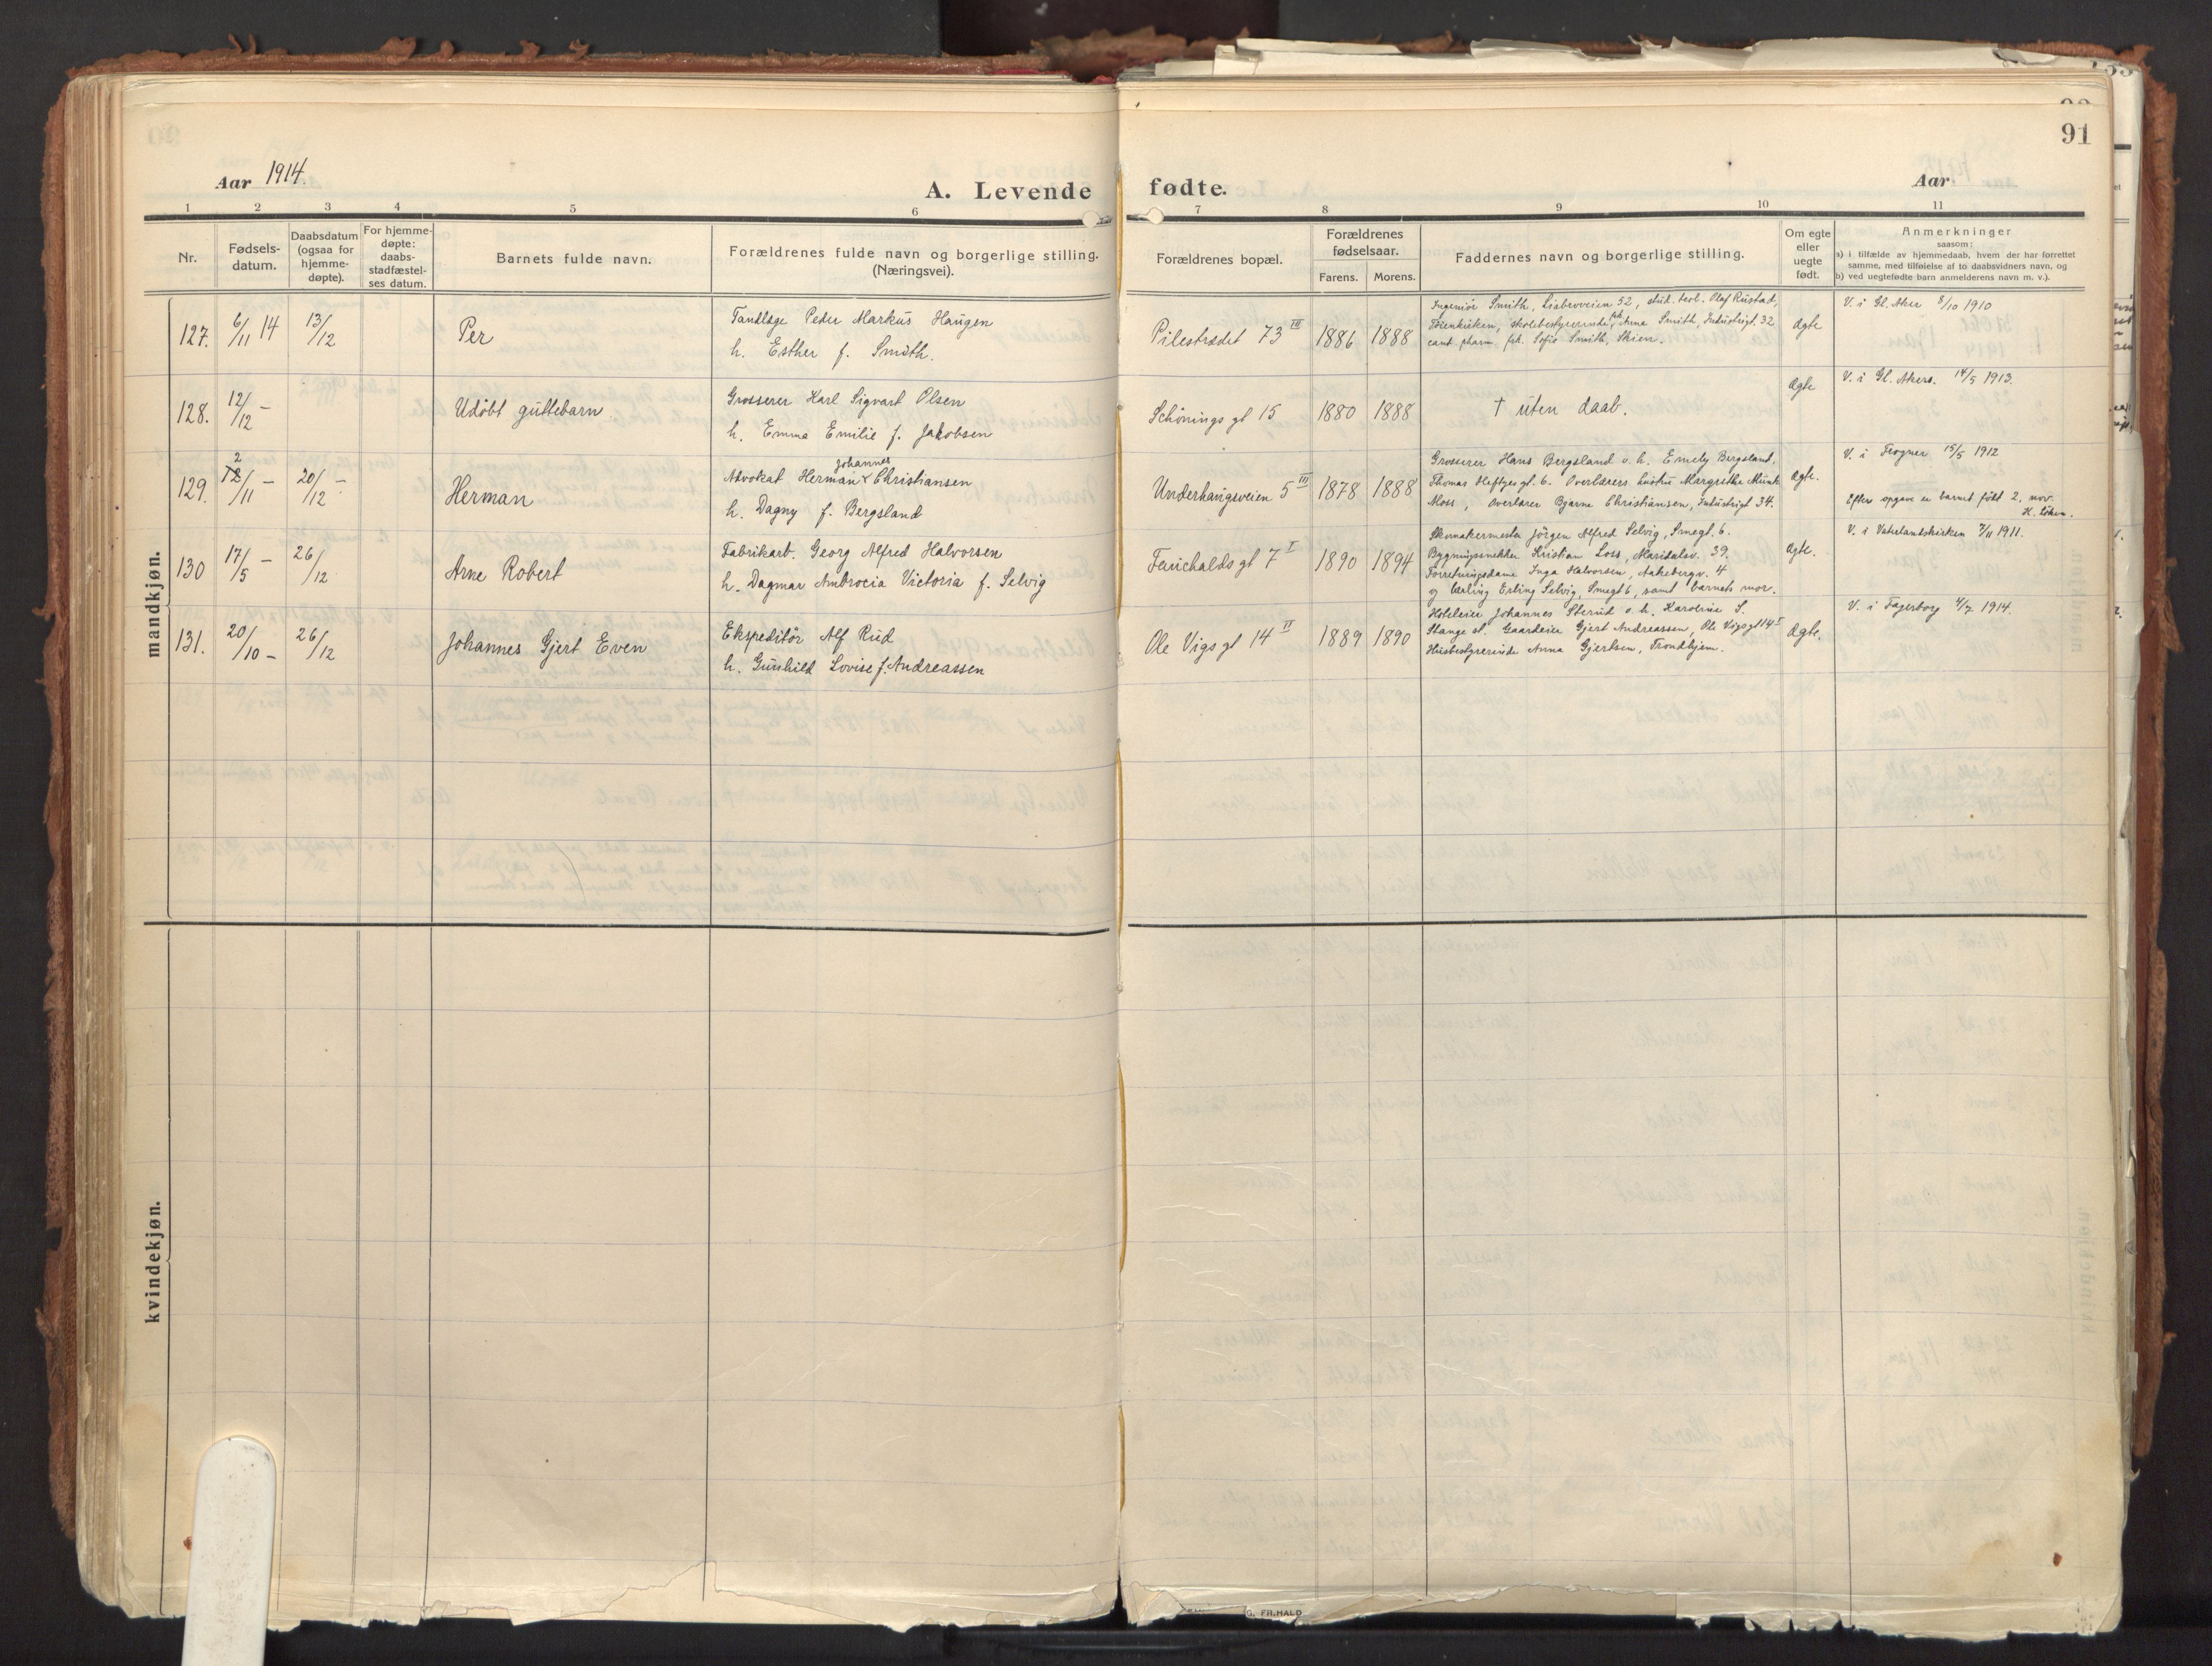 91
Aar 1914.
A. Levende fødte.
Aar
1 2 3 4 5 6 7 8 9 10 11
Nr.
Fødsels-
datum.
Daabsdatum
(ogsaa for
hjemme-
døpte).
For hjemme-
døpte:
daabs-
stadfæstel-
ses datum.
Barnets fulde navn.
Forældrenes fulde navn og borgerlige stilling.
(Næringsvei).
Forældrenes bopæl.
Forældrenes
fødselsaar.
Farens. Morens.
Faddernes navn og borgerlige stilling.
Om egte
eller
uegte
født.
Anmerkninger
saasom:
a) i tilfælde av hjemmedaab, hvem der har forrettet
samme, med tilføielse af to daabsvidners navn, og
b) ved uegtefødte barn anmelderens navn m. v.).
mandkjøn.
127. 6/11 14 13/12 Per
Tandlæge Peder Markus Haugen
h. Esther f. Smith.
Pilestrædet 73 III 1886 1888
Ingeniör Smith, Liabroveien 52, stud. teol. Olaf Rustad,
skolebestyrerinde frk. Anna Smith, Industrigt. 32
cand. pharm. frk. Sofie Smith, Skien.
Ægte
V. i Gl. Aker 8/10 1910
128. 12/12 - Udöbt guttebarn
Grosserer Karl Sigvart Olsen
h. Emma Emilie f. Jakobsen
Schönings gt 15 1880 1888
† uten daab.
Ægte
V. i Gl. Akers. 14/5 1913.
129. 2 12/11 - 20/12 - Herman
Johannes
Advokat Herman Christiansen
h. Dagny f. Bergsland
Underhaugsveien 5 III 1878 1888
Grosserer Hans Bergsland o. h. Emely Bergsland,
Thomas Heftyes gt. 6. Overlærers hustru Margrethe Munk
Moss, overlærer Bjarne Christiansen, Industrigt 34.
Ægte.
V. i Frogner 15/5 1912
Efter opgave er barnet född 2. nov.
130 17/5 - 26/12 Arne Robert
Fabrikarb. Georg Alfred Halvorsen
h. Dagmar Ambrocia Victoria f. Selvig
Fauchalds gt 7 I 1890 1894
Skomakermester Jörgen Alfred Selvig, Smegt. 6.
Bygningssnekker Kristian Loss, Maridalsv. 39,
Forretningsdame Inga Halvorsen, Aakebergv. 4
og lærling Erling Selvig, Smegt 6, samt barnets mor.
Ægte.
V. i Vaterlandskirken 7/11 1911.
131. 20/10 - 26/12 Johannes Gjert Even
Ekspeditör Alf Rud
h. Gunhild Lovise f. Andreassen
Ole Vigs gt 14 II 1889 1890
Hoteleier Johannes Sterud o. h. Karoline S.
Stange st. Gaardeier Gjert Andreassen, Ole Vigsgt 14 I
Husbestyrerinde Anna Gjertsen, Trondhjem.
Ægte.
V. i Fagerborg 4/7 1914.
kvindekjøn.
G. FR. HALD